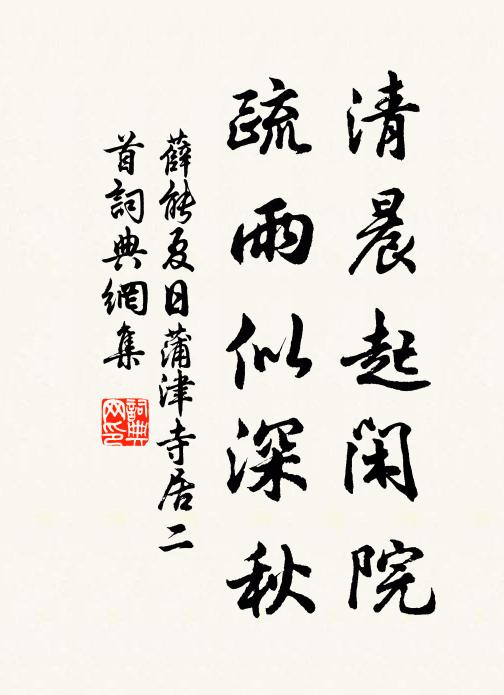 清晨起閑院
疏雨似深秋
薛能夏日蒲津寺居二
首詞典網集
詞典
网印